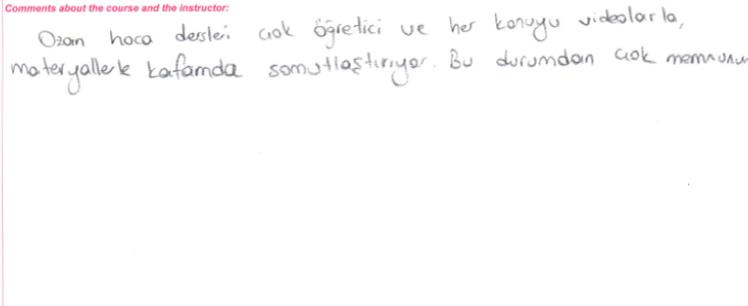 Comments about the course and the instructor:
Ozan hoca dersleri çok öğretici ve her konuyu videolarla,
materyallerle kafamda somutlaştırıyor. Bu durumdan çok memnunum